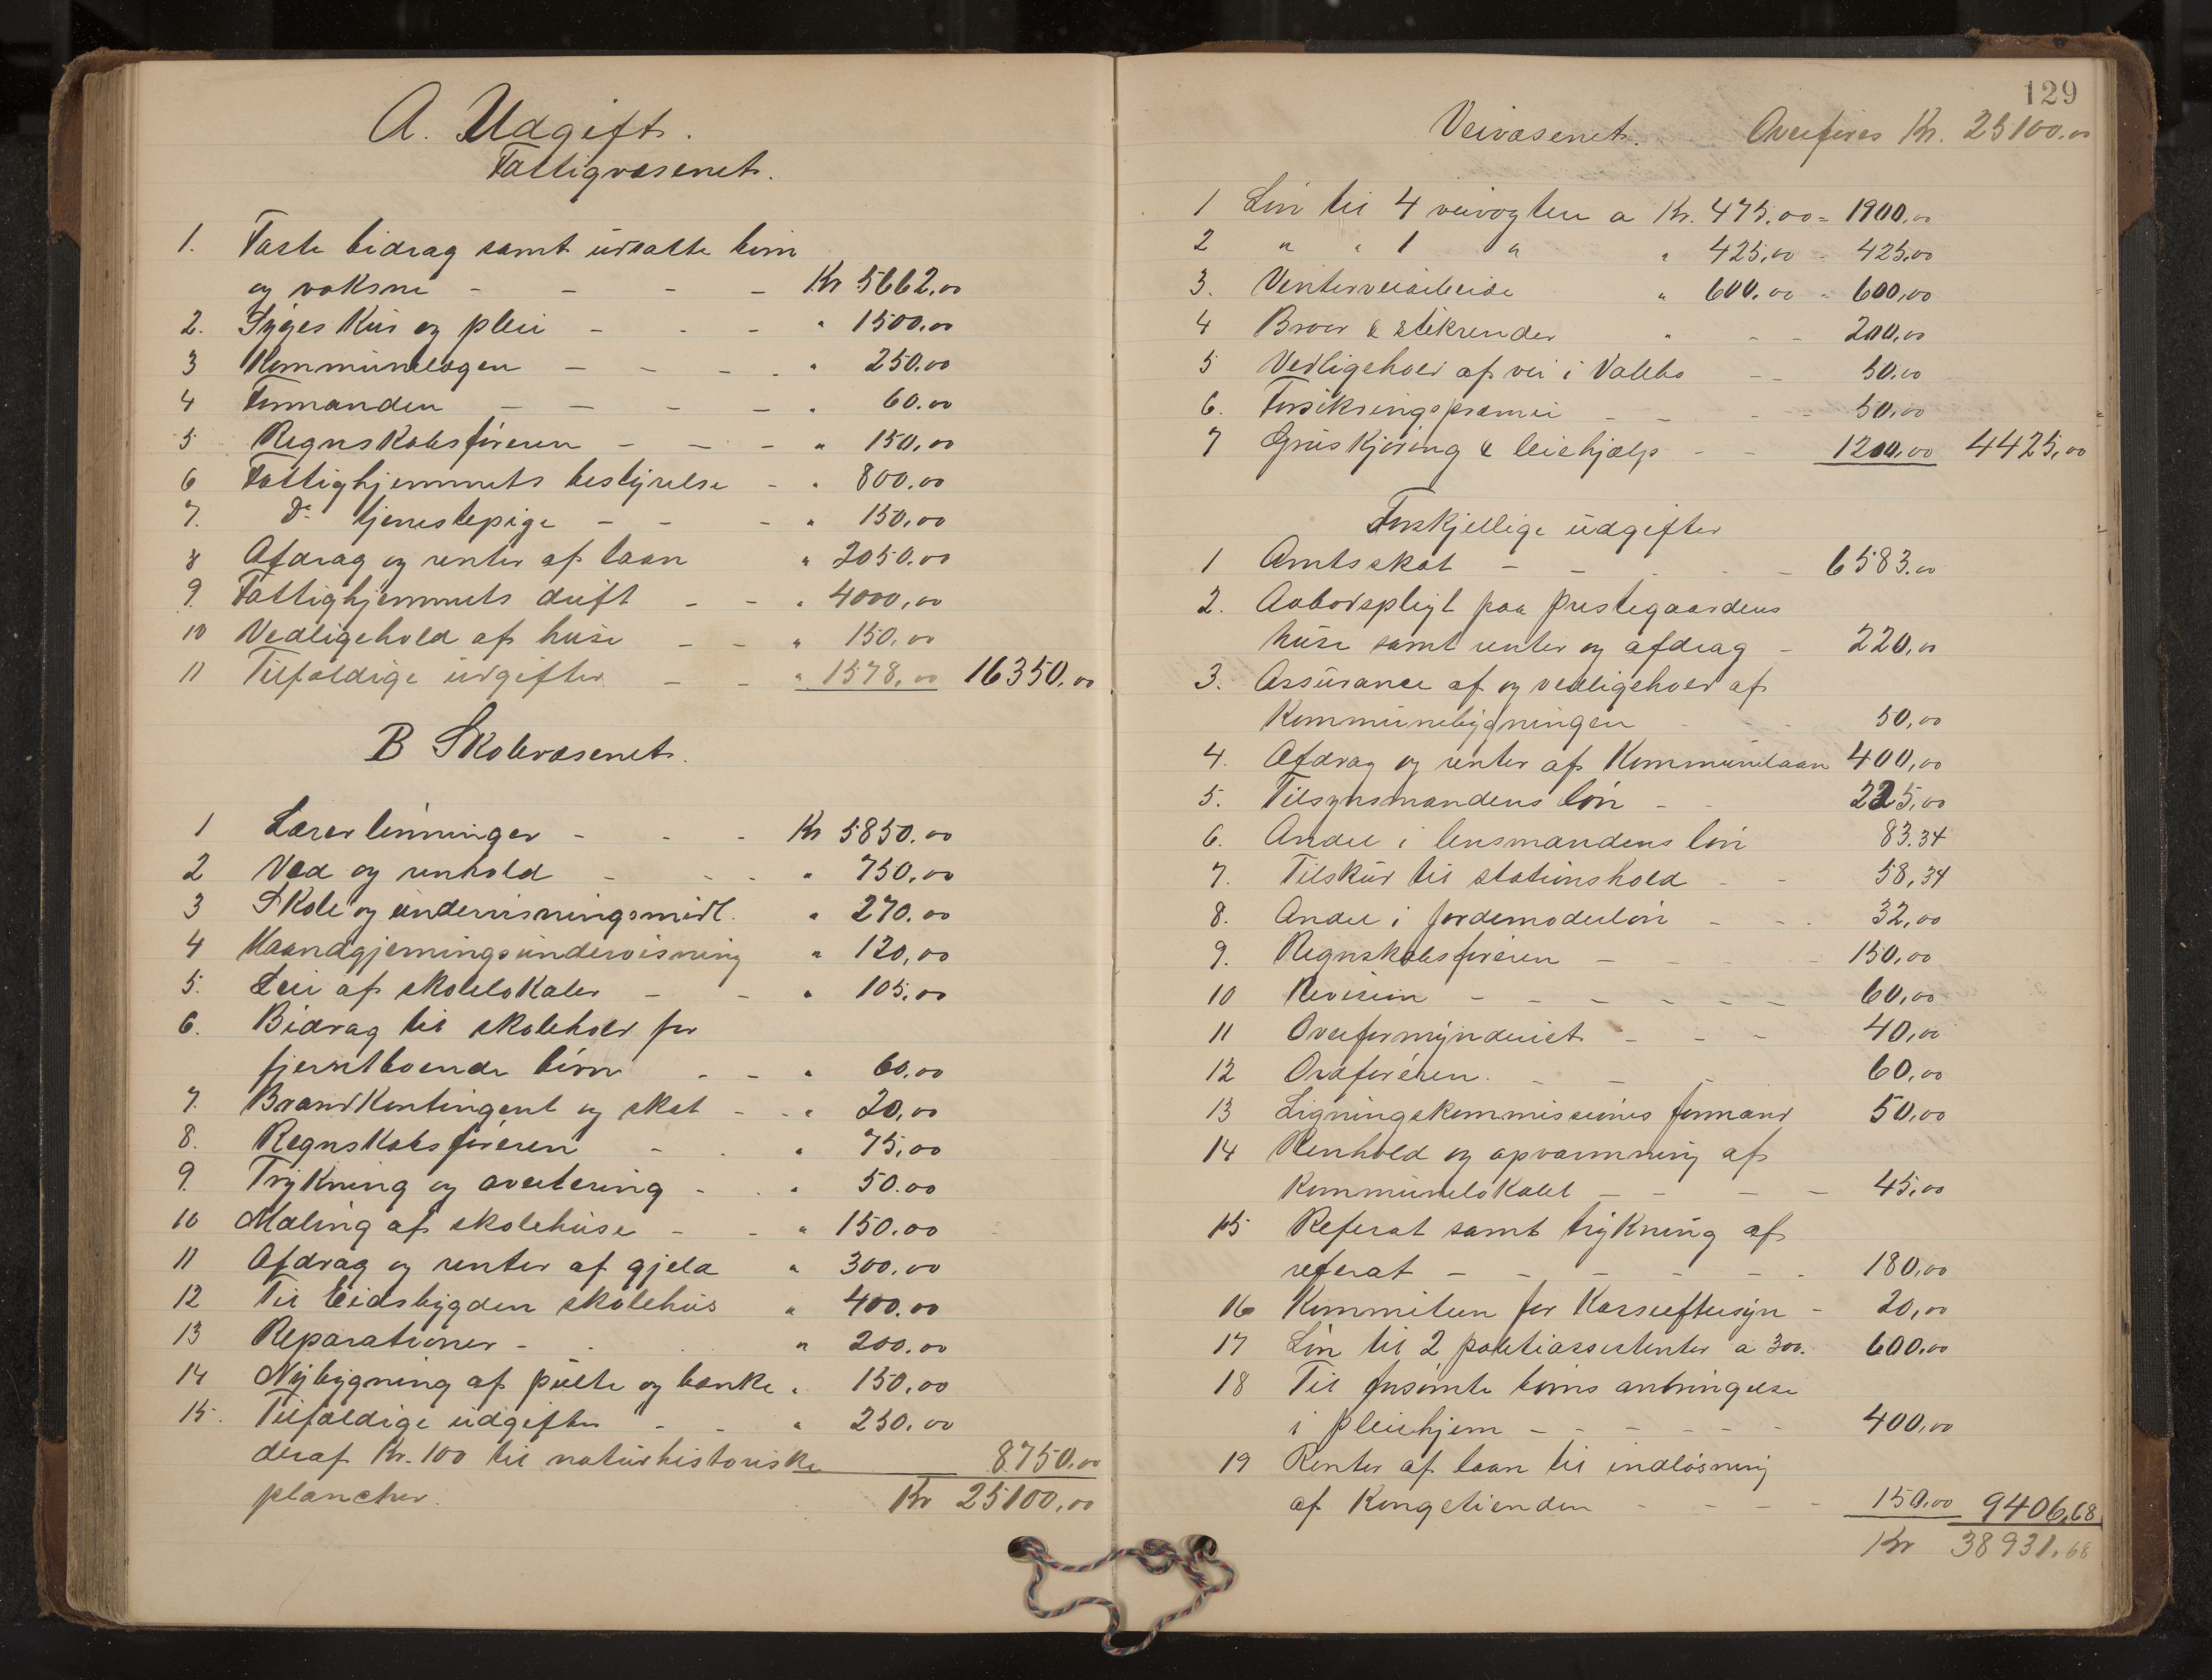 A. Udgift.
Fattigvæsenet.
1. Faste bidrag samt udsatte børn
og voksne - - - - Kr 5662,00
2. Syges Kur og pleie - - - " 1500.00
3 Kommunelægen - - - - " 250.00
4 Formanden - - - - " 60.00
5 Regnskabsføreren - - - " 150,00
6 Fattighjemmets bestyrelse - " 800.00
7. Do tjenestepige - - - " 150,00
8 Afdrag og renter af laan " 2050.00
9. Fattighjemmets drift - - " 4000,00
10 Vedligehold af huse - - " 150,00
11 Tilfældige udgifter - - " 1578,00 16350,00
B Skolevæsenet.
1 Lærerlønninger - - - Kr 5850.00
2 Ved og renhold - - - " 750,00
3 Skole og undervisningsmidl. " 270.00
4 Haandgjerningsundervisning " 120,00
5. Leie af skolelokaler - - " 105.00
6. Bidrag til skolehold for
fjerntboende børn - - " 60.00
7. Brandkontingent og skat - - " 20,00
8. Regnskabsføreren - - " 75,00
9. Trykning og avertering - - " 50.00
10 Maling af skolehuse - - " 150.00
11 Afdrag og renter af gjeld " 300,00
12 Til Eidsbygden skolehus " 400.00
13 Reparationer - - " 200.00
14 Nybygning af pulte og bænke " 150,00
15. Tilfældige udgifter - - " 250,00
deraf Kr. 100 til naturhistoriske 8750.00
plancher. Kr 25100,00
129
Veivæsenet. Overføres Kr. 25100.00
1 Løn til 4 veivogtere a Kr. 475.00 = 1900,00
2 " " 1 " " 425,00 - 425,00
3. Vinterveiarbeide " 600,00 - 600,00
4 Broer & stikrender " - - 200,00
5 Vedligehold af vei i Valebø - - 50,00
6. Forsikringspræmie - - - - 50,00
7 Gruskjøring & leiehjælp - - 1200,00 4425,00
Forskjellige udgifter
1 Amtsskat - - - - - 6583.00
2. Aabodspligt paa prestegaardens
huse samt renter og afdrag - 220,00
3. Assurance af og vedligehold af
Kommunebygningen - - - 50,00
4. Afdrag og renter af Kommunelaan 400,00
5. Tilsynsmandens løn - - 225,00
6. Andel i lensmandens løn 83.34
7. Tilskud til stationshold - - 58,34
8. Andel i jordemoderløn - - - 32,00
9. Regnskabsføreren - - - - 150,00
10 Revision - - - - - - 60,00
11 Overformynderiet - - - 40,00
12 Ordføreren. - - - 60.00
13 Ligningskommissiones formand 50,00
14 Renhold og opvarmning af
Kommunelokalet - - - - 45,00
15 Referat samt trykning af
referat - - - - - - 180,00
16 Kommiteen for Kasseeftersyn - 20,00
17 Løn til 2 politiassistenter a 300. 600.00
18 Til forsømte børns anbringelse
i pleiehjem - - - - - - 400,00
19 Renter af laan til indløsning
af Kongetienden - - - - 150.00 9406,68
Kr 38931,68